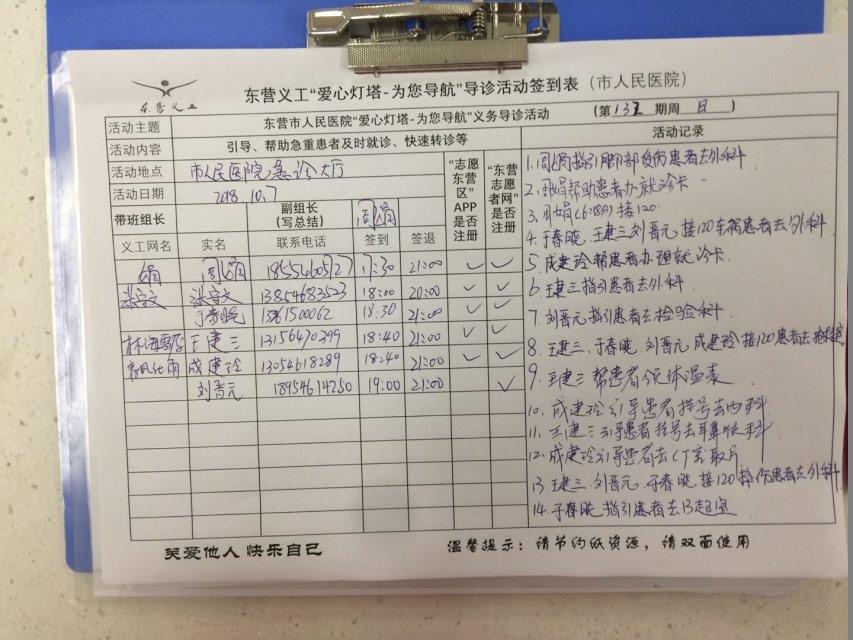 东营义工
东营义工“爱心灯塔-为您导航”导诊活动签到表（市人民医院）
（第132期周日）
活动主题 东营市人民医院“爱心灯塔-为您导航”义务导诊活动
活动内容 引导、帮助急重患者及时就诊、快速转诊等
活动地点 市人民医院急诊大厅
活动日期 2018.10.7
带班组长 副组长（写总结） 周娟
“志愿东营区”APP是否注册
“东营志愿者网”是否注册
义工网名 实名 联系电话 签到 签退
娟 周娟 18554605727 17:30 21:00 ✓ ✓
张守文 张守文 13854683523 18:00 20:00 ✓ ✓
于春晓 18:30 21:00 ✓ ✓
林海雪原 王建三 13156470299 18:40 21:00 ✓ ✓
成建玲 13054618289 18:40 21:00 ✓ ✓
刘晋元 18954614250 19:00 21:00 ✓
活动记录
1.周娟指引脚部受伤患者去外科
2.帮助患者办就诊卡
3.周娟 接120
4.于春晓、王建三、刘晋元、接120车祸患者去外科
5.成建玲帮患者办理就诊卡
6.王建三指引患者去外科
7.刘晋元指引患者去检验科
8.王建三、于春晓、刘晋元、成建玲接120患者去抢救室
9.王建三帮患者领体温表
10.成建玲引导患者挂号去内科
11.王建三引导患者挂号去耳鼻喉科
12.成建玲引导患者去CT室取片
13.王建三、刘晋元、于春晓、接120摔伤患者去外科
14.于春晓指引患者去B超室
关爱他人 快乐自己
温馨提示：请节约纸资源，请双面使用